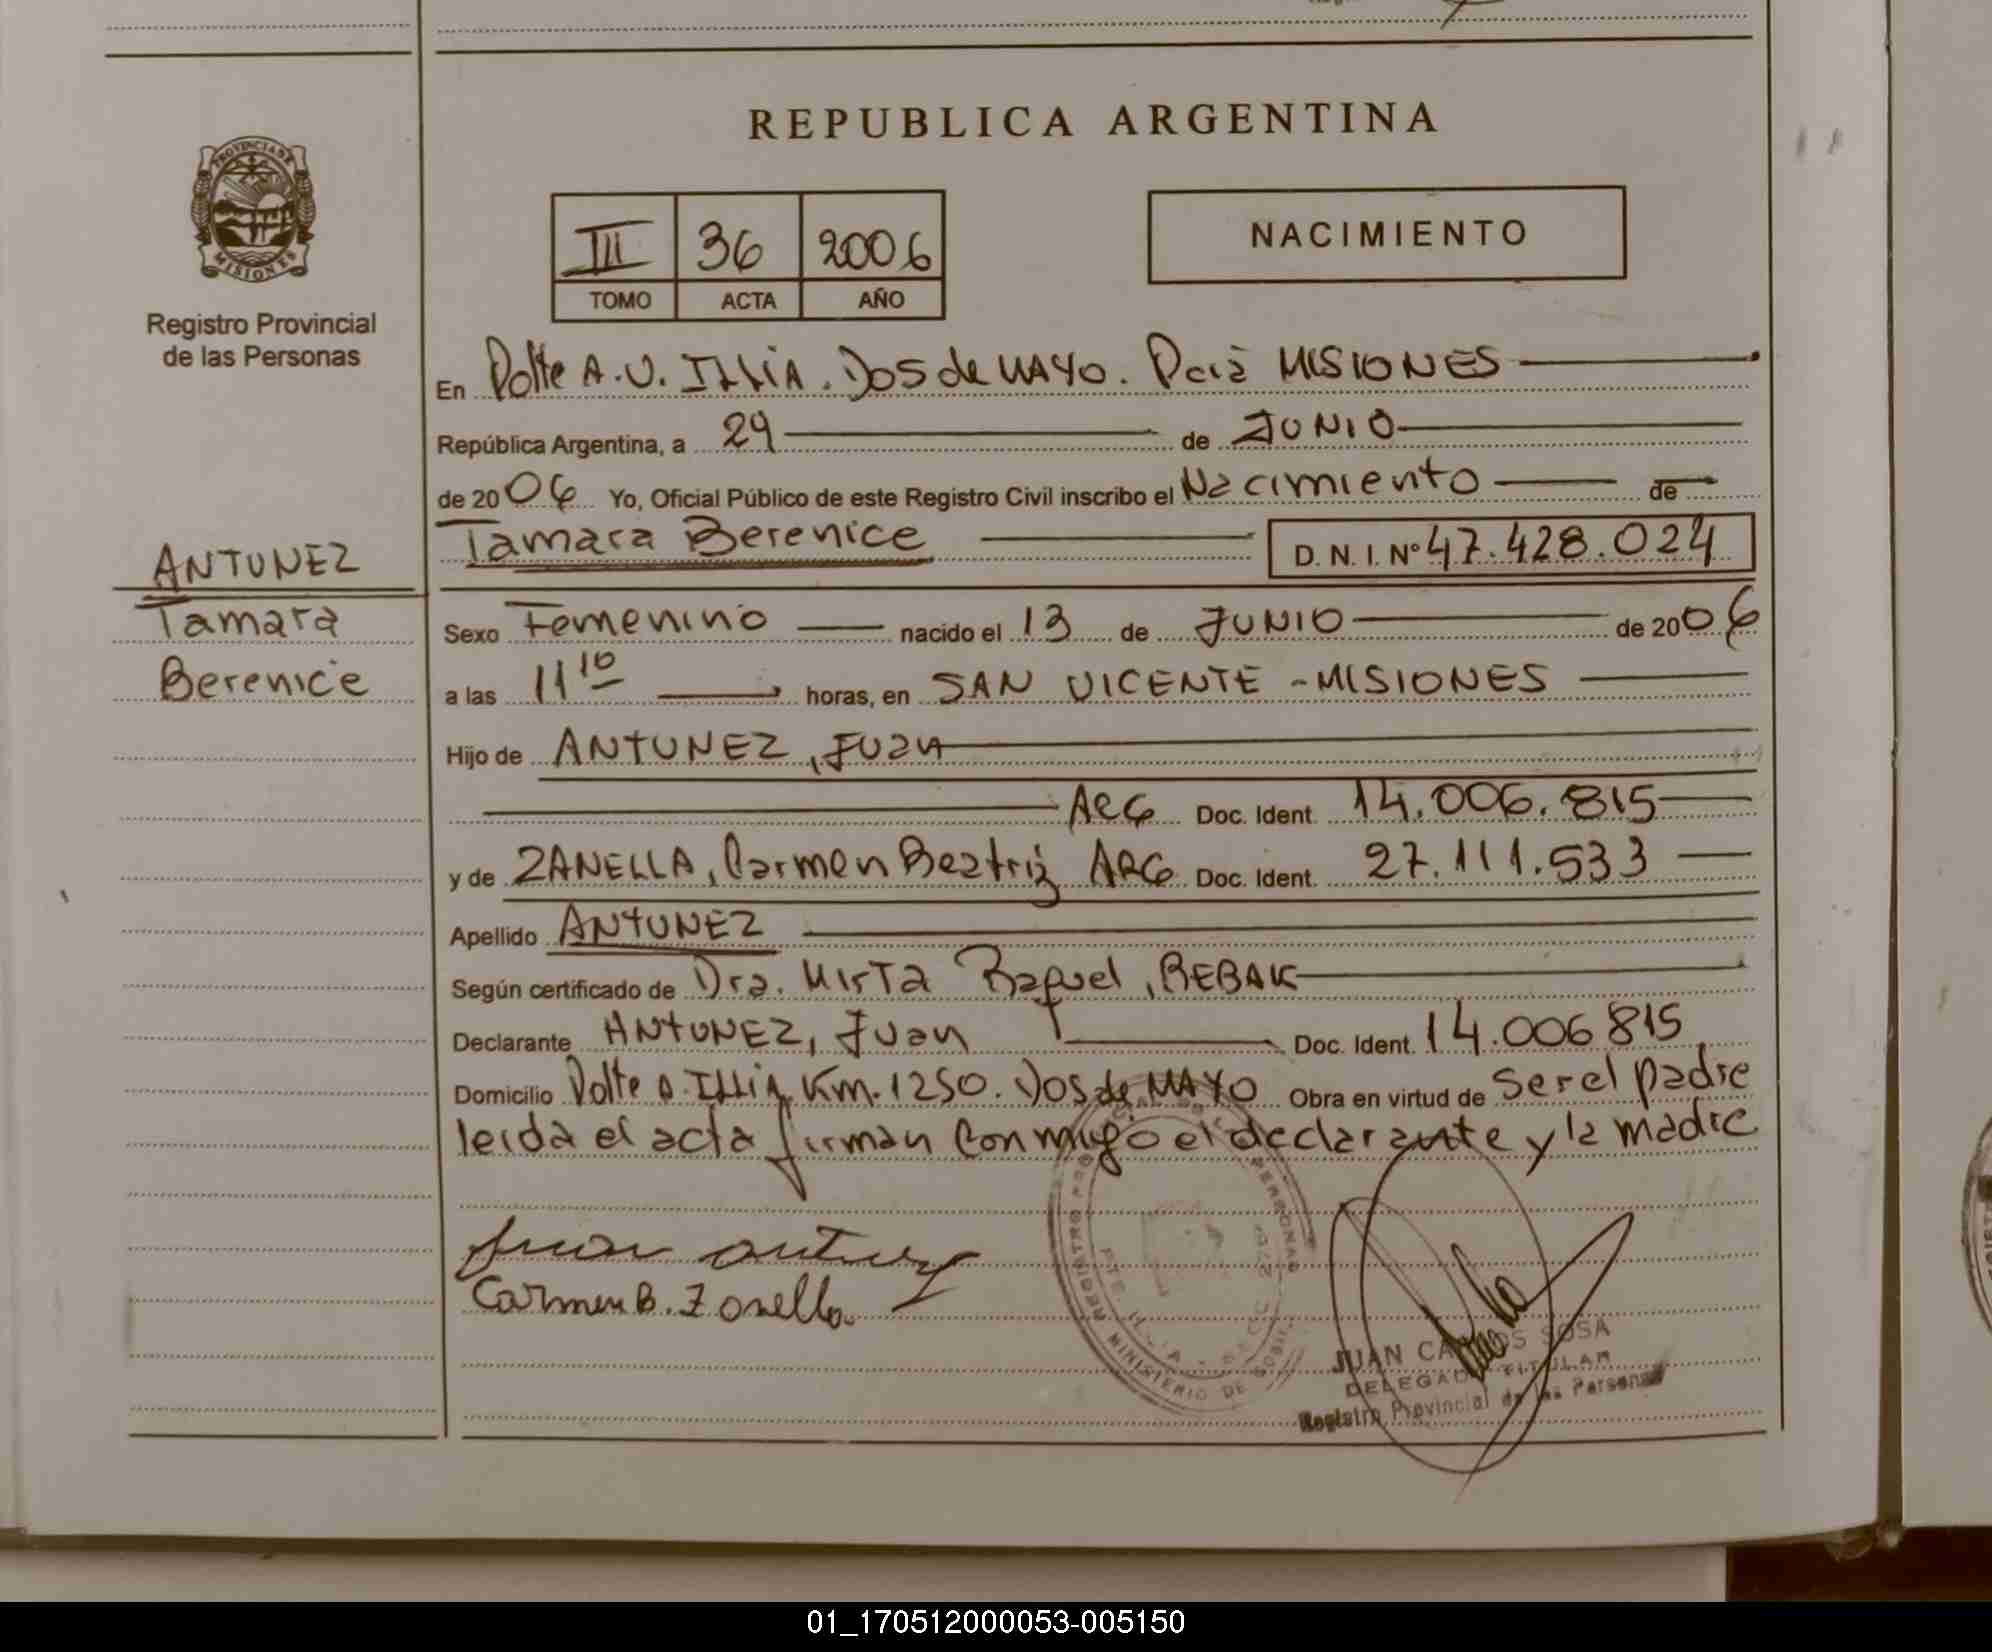 REPUBLICA ARGENTINA
PROVINCIA DE
MISIONES
Registro Provincial
de las Personas
III 36 2006
TOMO ACTA AÑO
NACIMIENTO
En Pdte A.U. ILLIA. Dos de MAYO. Pcia MISIONES
República Argentina, a 29 de JUNIO
de 2006 Yo, Oficial Público de este Registro Civil inscribo el Nacimiento de
Tamara Berenice D. N. I. Nº 47.428.024
ANTUNEZ
Tamara
Berenice
Sexo Femenino nacido el 13 de JUNIO de 2006
a las 11 10 horas, en SAN VICENTE - MISIONES
Hijo de ANTUNEZ, Juan
ARG Doc. Ident. 14.006.815
y de ZANELLA, Carmen Beatriz ARG Doc. Ident. 27.111.533
Apellido ANTUNEZ
Según certificado de Dra. Mirta Raquel, REBAK
Declarante ANTUNEZ, Juan Doc. Ident. 14.006 815
Domicilio Pdte A. ILLIA Km. 1250. Dos de MAYO Obra en virtud de Ser el padre
leida el acta firman Conmigo el declarante y la madre
Juan Antunez
Carmen B. Zanella
REGISTRO PROVINCIAL DE LAS PERSONAS
MINISTERIO DE GOBIERNO
JUAN CARLOS SOSA
DELEGADO TITULAR
Registro Provincial de las Personas
01_170512000053-005150